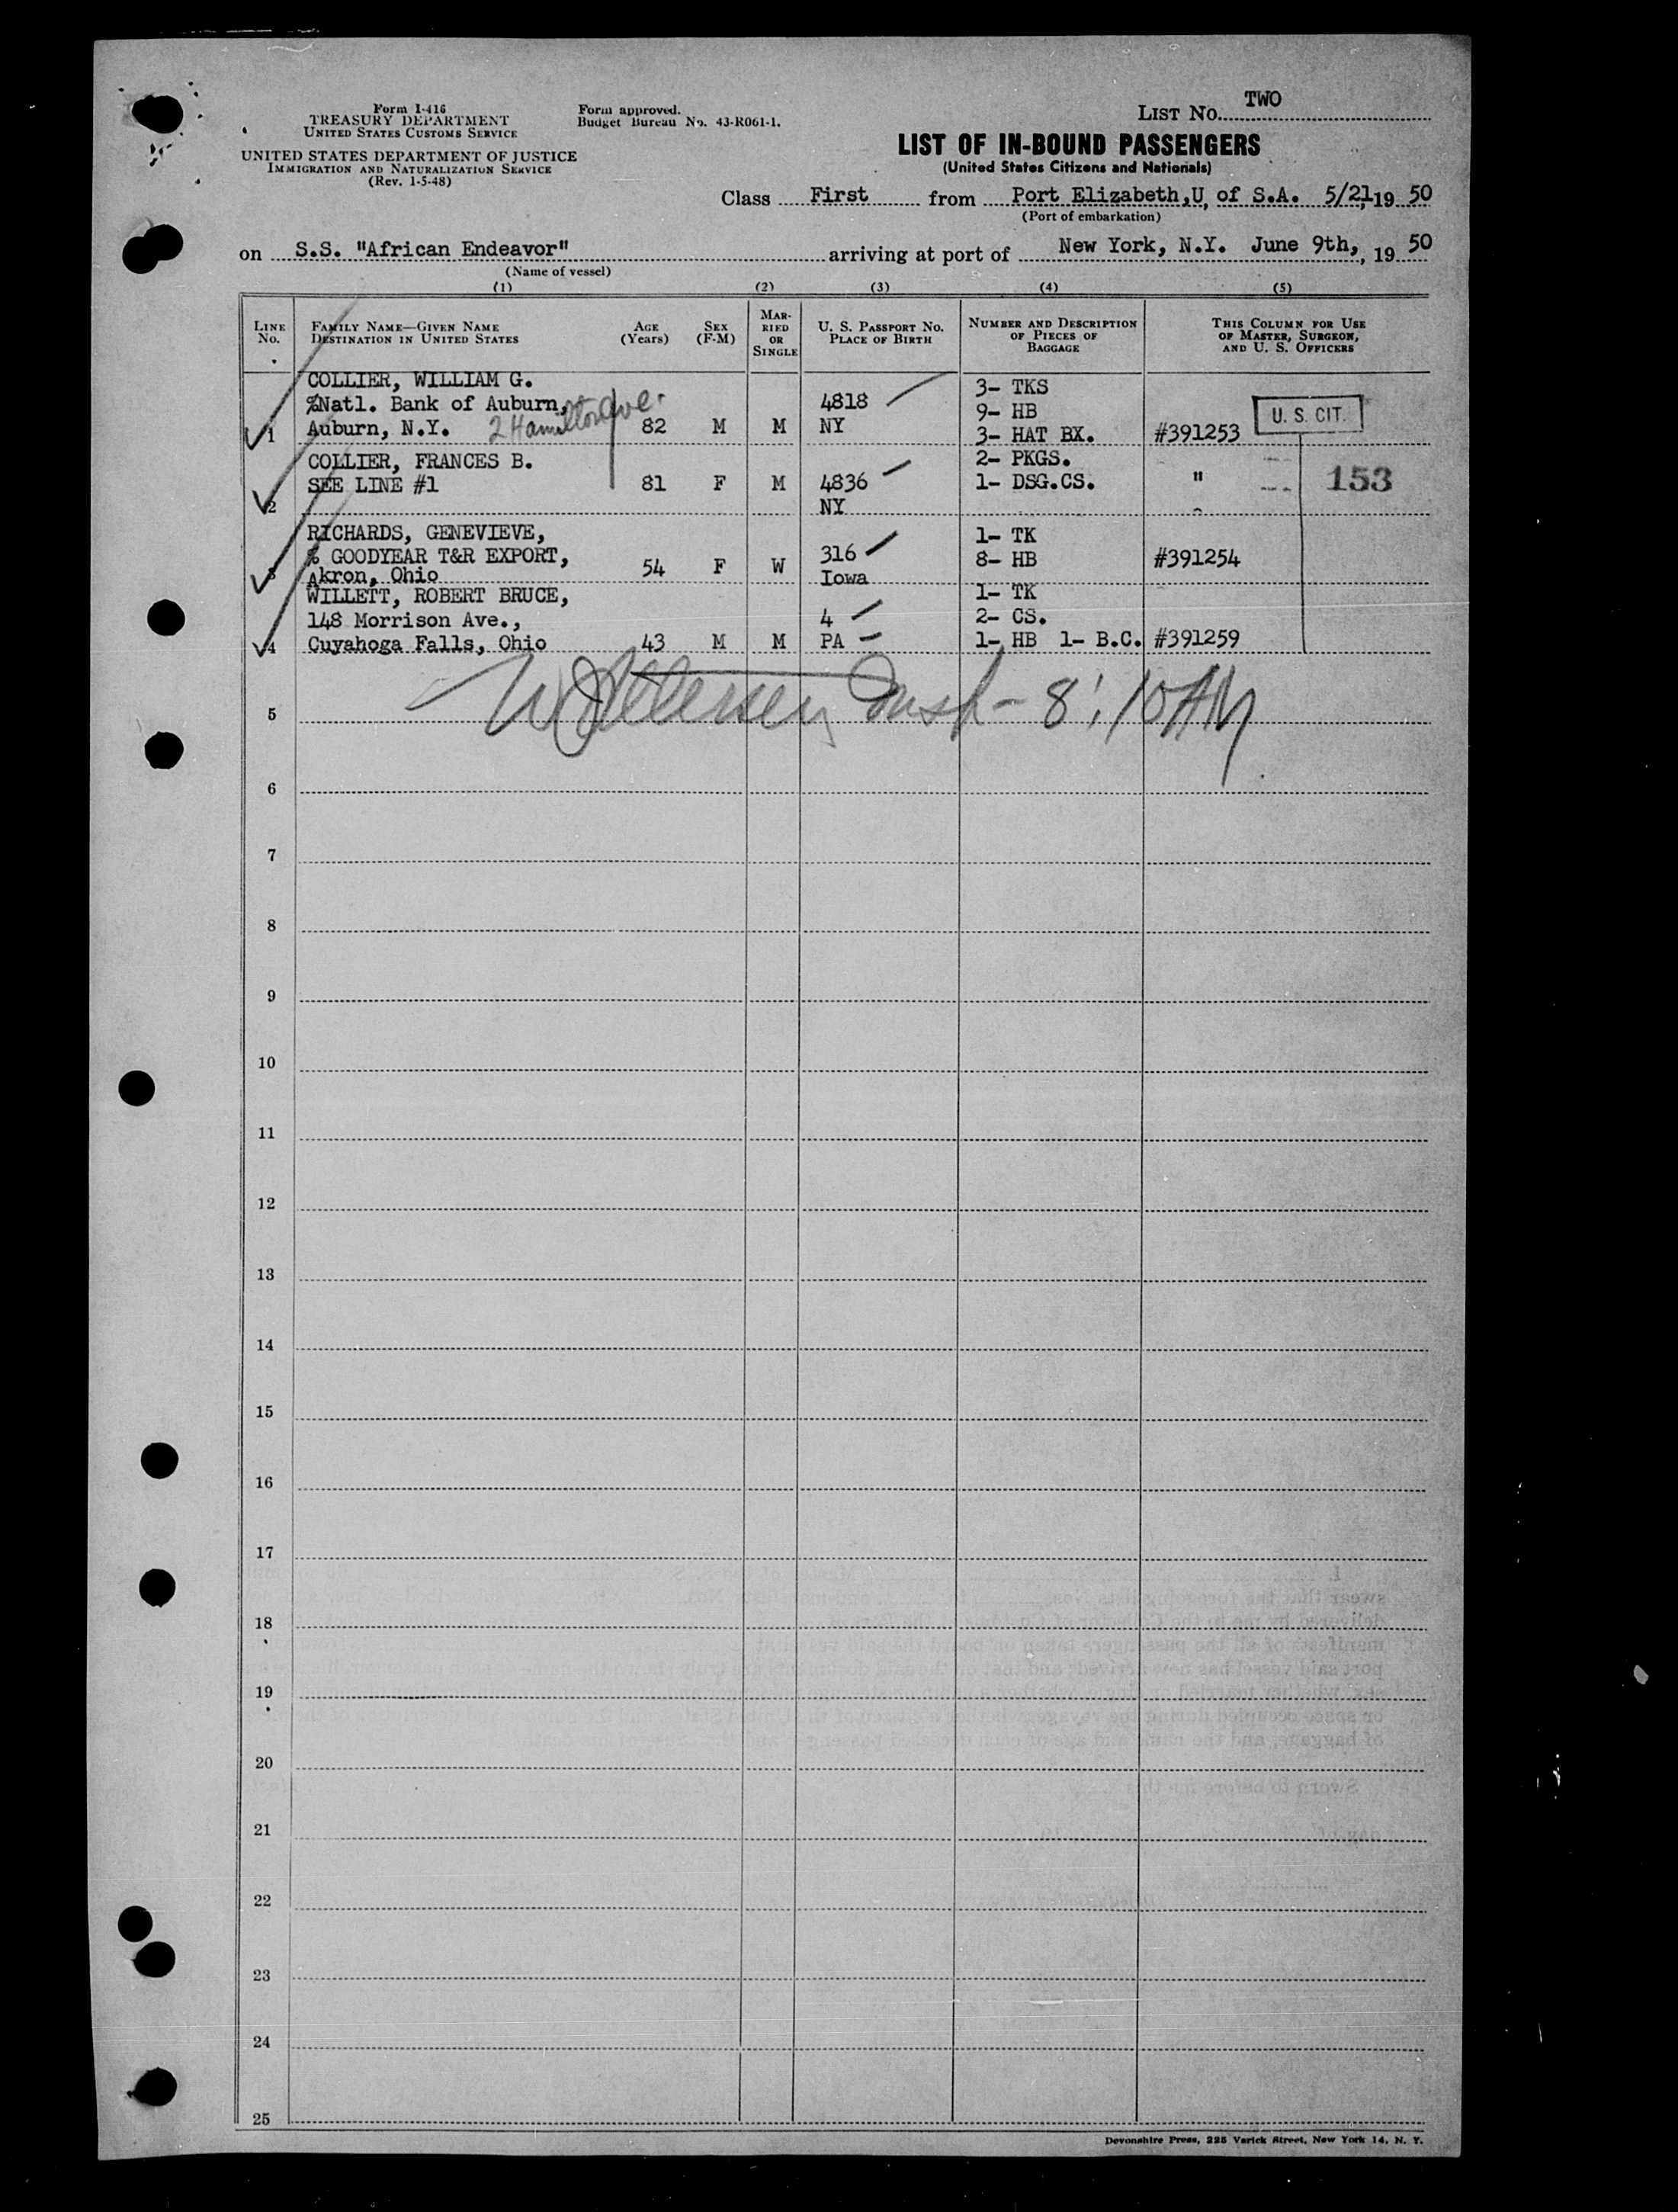 Form I-416
TREASURY DEPARTMENT
UNITED STATES CUSTOMS SERVICE
UNITED STATES DEPARTMENT OF JUSTICE
IMMIGRATION AND NATURALIZATION SERVICE
(Rev. 1-5-48)
Form approved.
Budget Bureau No. 43-R061-1.
LIST No. TWO
LIST OF IN-BOUND PASSENGERS
(United States Citizens and Nationals)
Class First from Port Elizabeth, U, of S.A. 5/21, 19 50
(Port of embarkation)
on S.S. "African Endeavor" arriving at port of New York, N.Y. June 9th, 19 50
(Name of vessel)
(1) (2) (3) (4) (5)
LINE No. FAMILY NAME—GIVEN NAME DESTINATION IN UNITED STATES AGE (Years) SEX (F-M) MARRIED OR SINGLE U. S. PASSPORT No. PLACE OF BIRTH NUMBER AND DESCRIPTION OF PIECES OF BAGGAGE THIS COLUMN FOR USE OF MASTER, SURGEON, AND U. S. OFFICERS
COLLIER, WILLIAM G. 3- TKS
%Natl. Bank of Auburn, 4818 9- HB U. S. CIT.
1 Auburn, N.Y. 2 Hamilton Ave. 82 M M NY 3- HAT BX. #391253
COLLIER, FRANCES B. 2- PKGS.
SEE LINE #1 81 F M 4836 1- DSG.CS. " 153
2 NY
RICHARDS, GENEVIEVE, 1- TK
% GOODYEAR T&R EXPORT, 54 F W 316 8- HB #391254
3 Akron, Ohio Iowa
WILLETT, ROBERT BRUCE, 1- TK
148 Morrison Ave., 4 2- CS.
4 Cuyahoga Falls, Ohio 43 M M PA 1- HB 1- B.C. #391259
5 Insp- 8:10 AM
6
7
8
9
10
11
12
13
14
15
16
17
18
19
20
21
22
23
24
25
Devonshire Press, 225 Varick Street, New York 14, N. Y.